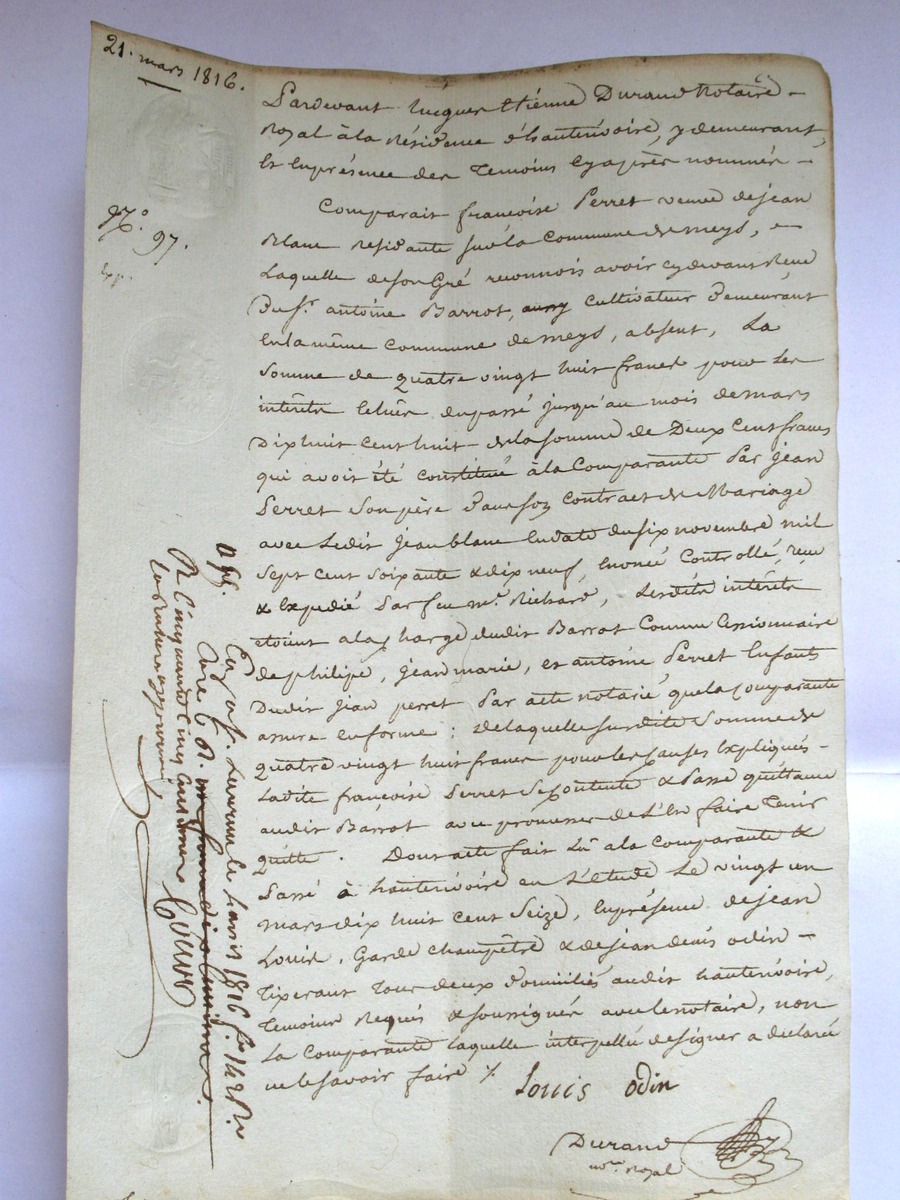 21. mars 1816.
N.° 97.
Exp.
Pardevant Etiénne Durand Notaire
Royal à la Résidence d'hauterivoire, y demeurant,
Et Enprésence des Temoins Cyaprès nommés
Comparait françoise Perret veuve dejean
Blanc residante sur la Commune de meys,
Laquelle desonGré reconnois avoir cydevant Recu
Du Sr. antoine Barrot, aussy Cultivateur Demeurant
En la même Commune de meys, absent, La
Somme de quatre vingt huit francs pour Les
intérêts du passé jusqu'au mois de mars
Dix huit cent huit de la somme de Deux Cent francs
qui avoit été Constitué à la Comparante Par Jean
Perret Son père Dans son Contract de Mariage
avec Ledit Jean blanc En date du six novembre mil
Sept Cent Soixante & dix neuf, Controllé, recu
& Expedié Par feu me. Richard, Lesdits intérêts
etoient a la Charge dudit Barrot Comme Cessionnaire
de philipe, jean marie, et antoine Perret Enfants
Dudit Jean perret Par acte notarié que la Comparante
assure en forme : de laquelle susdite Somme de
quatre vingt huit francs pour les Causes Expliqués
Ladite françoise Perret Se Contente & Passe quittance
audit Barrot avec promesse de L'En faire Tenir
quitte. Dont acte fait Lû a la comparante &
Passé à hauterivoire en L'étude Le vingt un
mars dix huit Cent Seize, En présence de jean
Louis, Garde Champêtre & de jean denis odin
Tixerant Tous deux Domiciliés audit hauterivoire,
Temoins Requis & soussignés avec le notaire, non
La Comparante Laquelle interpellée de signer a declaré
ne le savoir faire /.
Louis Odin
Durand
no.re Royal
1816